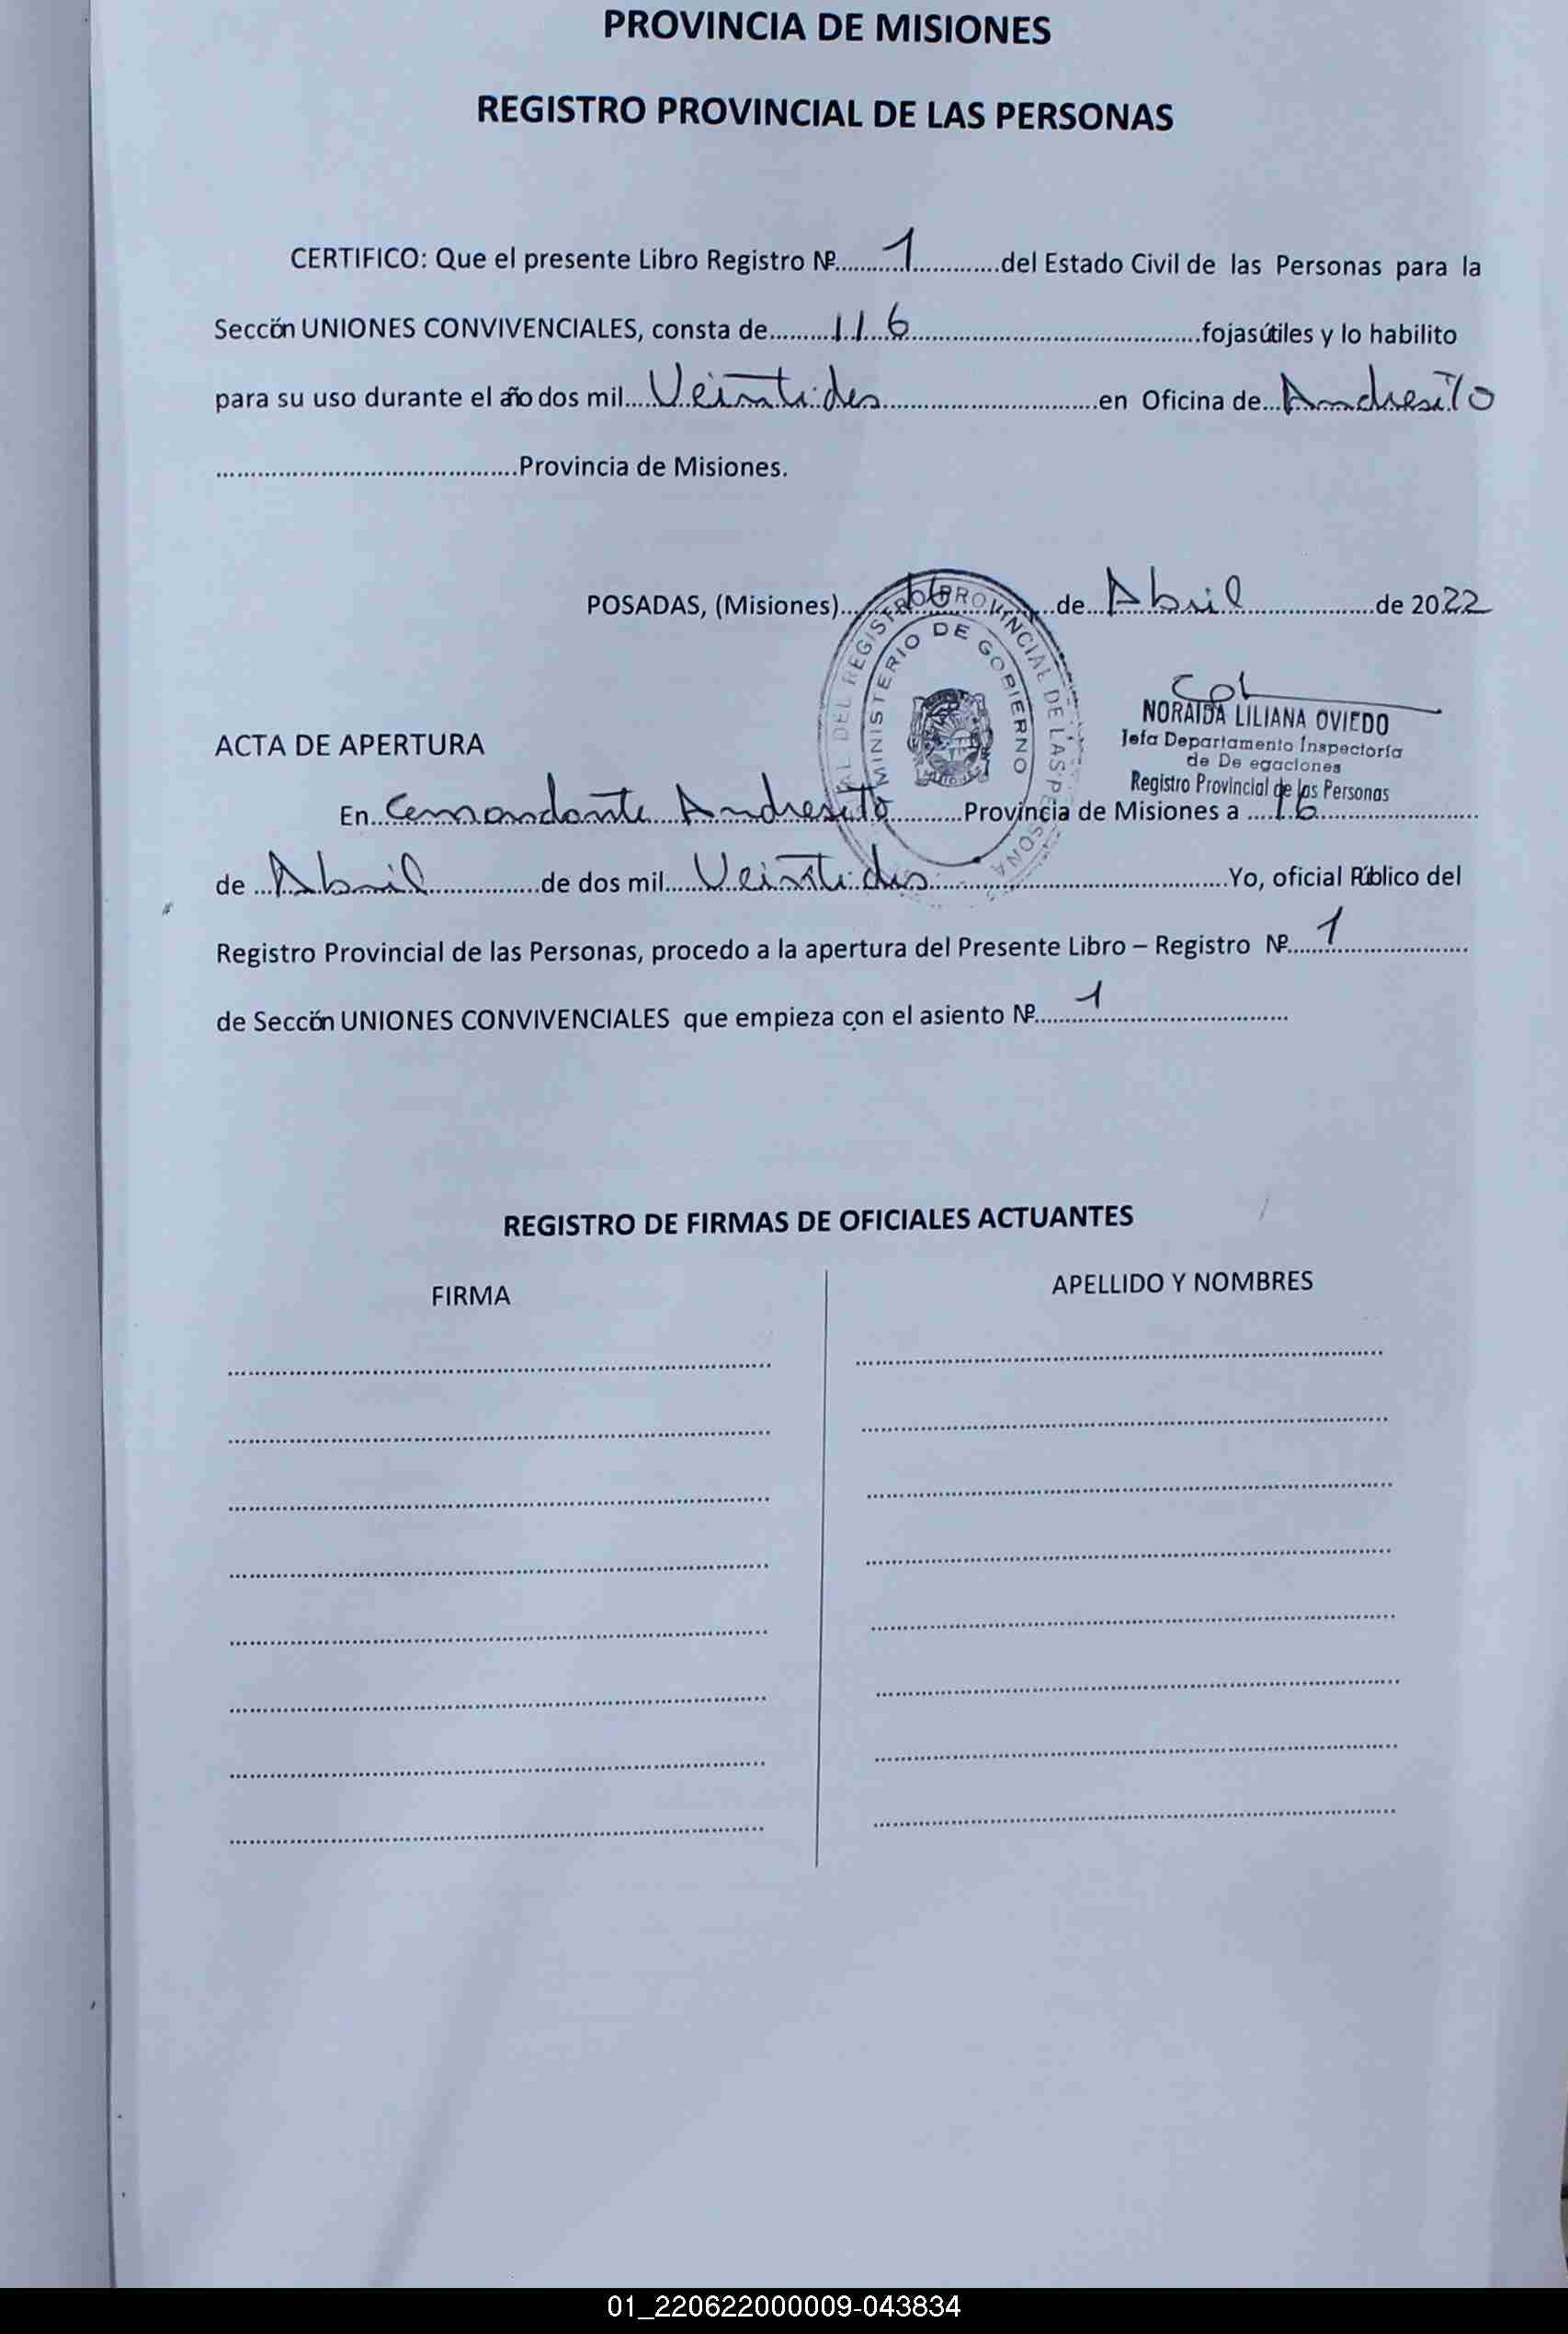 PROVINCIA DE MISIONES
REGISTRO PROVINCIAL DE LAS PERSONAS
CERTIFICO: Que el presente Libro Registro Nº..........1.............del Estado Civil de las Personas para la
Sección UNIONES CONVIVENCIALES, consta de..........116..........................................fojas útiles y lo habilito
para su uso durante el año dos mil....Veintidos................................en Oficina de...Andresito
...........................................Provincia de Misiones.
POSADAS, (Misiones)......16..........de...Abril...................de 2022
NORAIDA LILIANA OVIEDO
Jefa Departamento Inspectoría
de De egaciones
Registro Provincial de las Personas
MINISTERIO DE GOBIERNO
ACTA DE APERTURA
En...Comandante Andresito..........Provincia de Misiones a .....16.......................
de ...Abril................de dos mil.....Veintidos...........................................Yo, oficial Público del
Registro Provincial de las Personas, procedo a la apertura del Presente Libro – Registro Nº.....1....................
de Sección UNIONES CONVIVENCIALES que empieza con el asiento Nº........1...........................
REGISTRO DE FIRMAS DE OFICIALES ACTUANTES
FIRMA APELLIDO Y NOMBRES
01_220622000009-043834